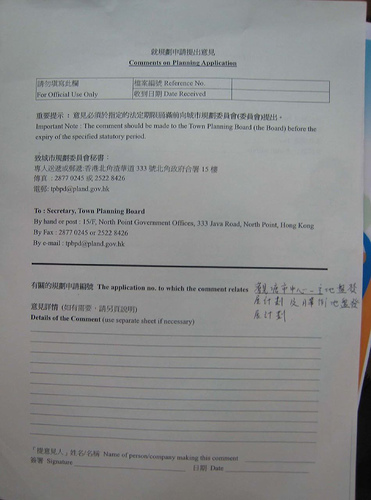 就規劃申請提出意見
Comments on Planning Application
請勿填寫此欄
For Official Use Only
檔案編號 Reference No.
收到日期 Date Received
重要提示：意見必須於指定的法定期限屆滿前向城市規劃委員會(委員會)提出。
Important Note : The comment should be made to the Town Planning Board (the Board) before the
expiry of the specified statutory period.
致城市規劃委員會秘書:
專人送遞或郵遞:香港北角渣華道 333 號北角政府合署 15 樓
傳真：2877 0245 或 2522 8426
電郵: tpbpd@pland.gov.hk
To : Secretary, Town Planning Board
By hand or post : 15/F, North Point Government Offices, 333 Java Road, North Point, Hong Kong
By Fax : 2877 0245 or 2522 8426
By e-mail : tpbpd@pland.gov.hk
有關的規劃申請編號 The application no. to which the comment relates
觀塘市中心－主地盤發
展計劃及月華街地盤發
展計劃
意見詳情 (如有需要，請另頁說明)
Details of the Comment (use separate sheet if necessary)
「提意見人」姓名/名稱 Name of person/company making this comment
簽署 Signature
日期 Date